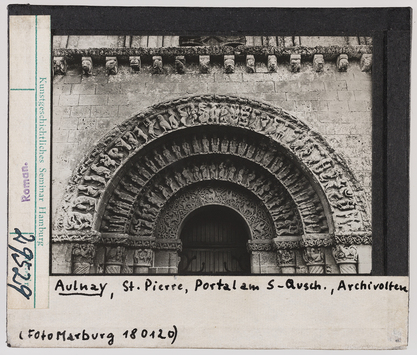 Kunstgeschichtliches Seminar Hamburg
Roman.
27529
Aulnay, St. Pierre, Portal am S-Qusch., Archivolten
(Foto Marburg 180120)